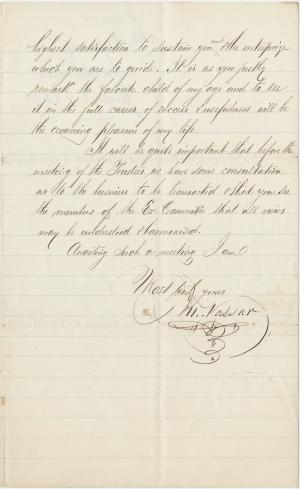 highest satisfaction to sustain you and the enterprize
which you are to guide. It is as you justly
remark the favorite child of my age and to see
it in the full career of success & usefulness will be
the crowning pleasure of my life.
It will be quite important that before the
meeting of the Trustees we have some consultation
as to the business to be transacted & that you see
the members of the Ex. Committee that all views
may be understood & harmonised.
Awaiting such a meeting I am
Most truly yours
M. Vassar